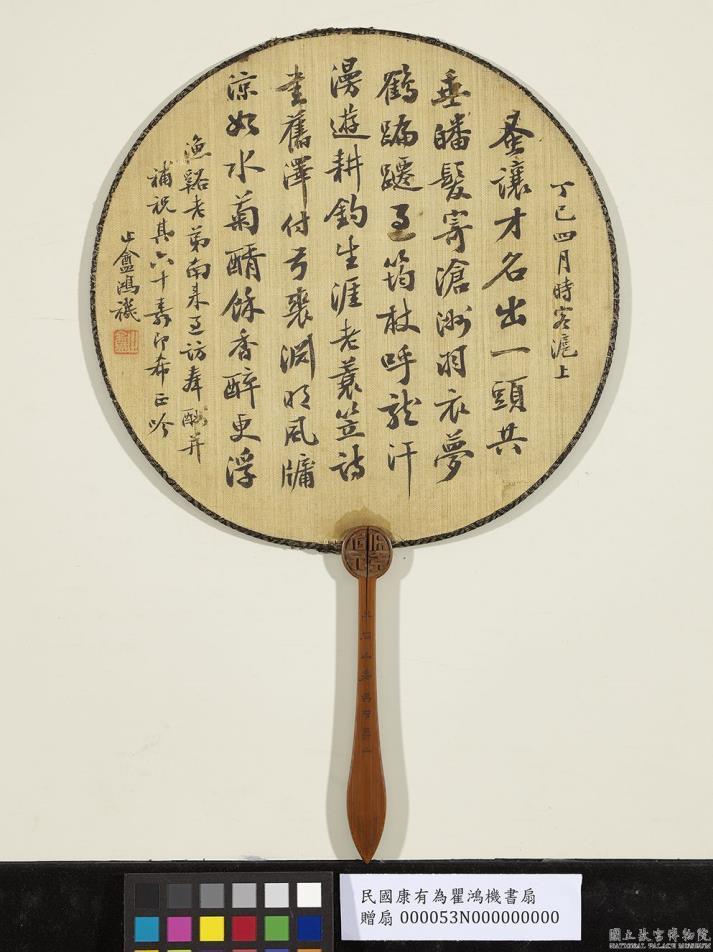 丁巳四月時客滬上
蚤讓才名出一頭共
垂皤髮寄滄洲羽衣夢
鶴蹁躚過筠杖呼龍汗
漫遊耕釣生涯老蓑笠詩
書舊澤付弓裘淵明風牖
涼如水菊醑餘香醉更浮
漁谿老弟南來過訪奉酬并
補祝其六十壽即希正吟
止盦鴻禨
民國康有為瞿鴻機書扇
贈扇 000053N000000000
國立故宮博物院
NATIONAL PALACE MUSEUM